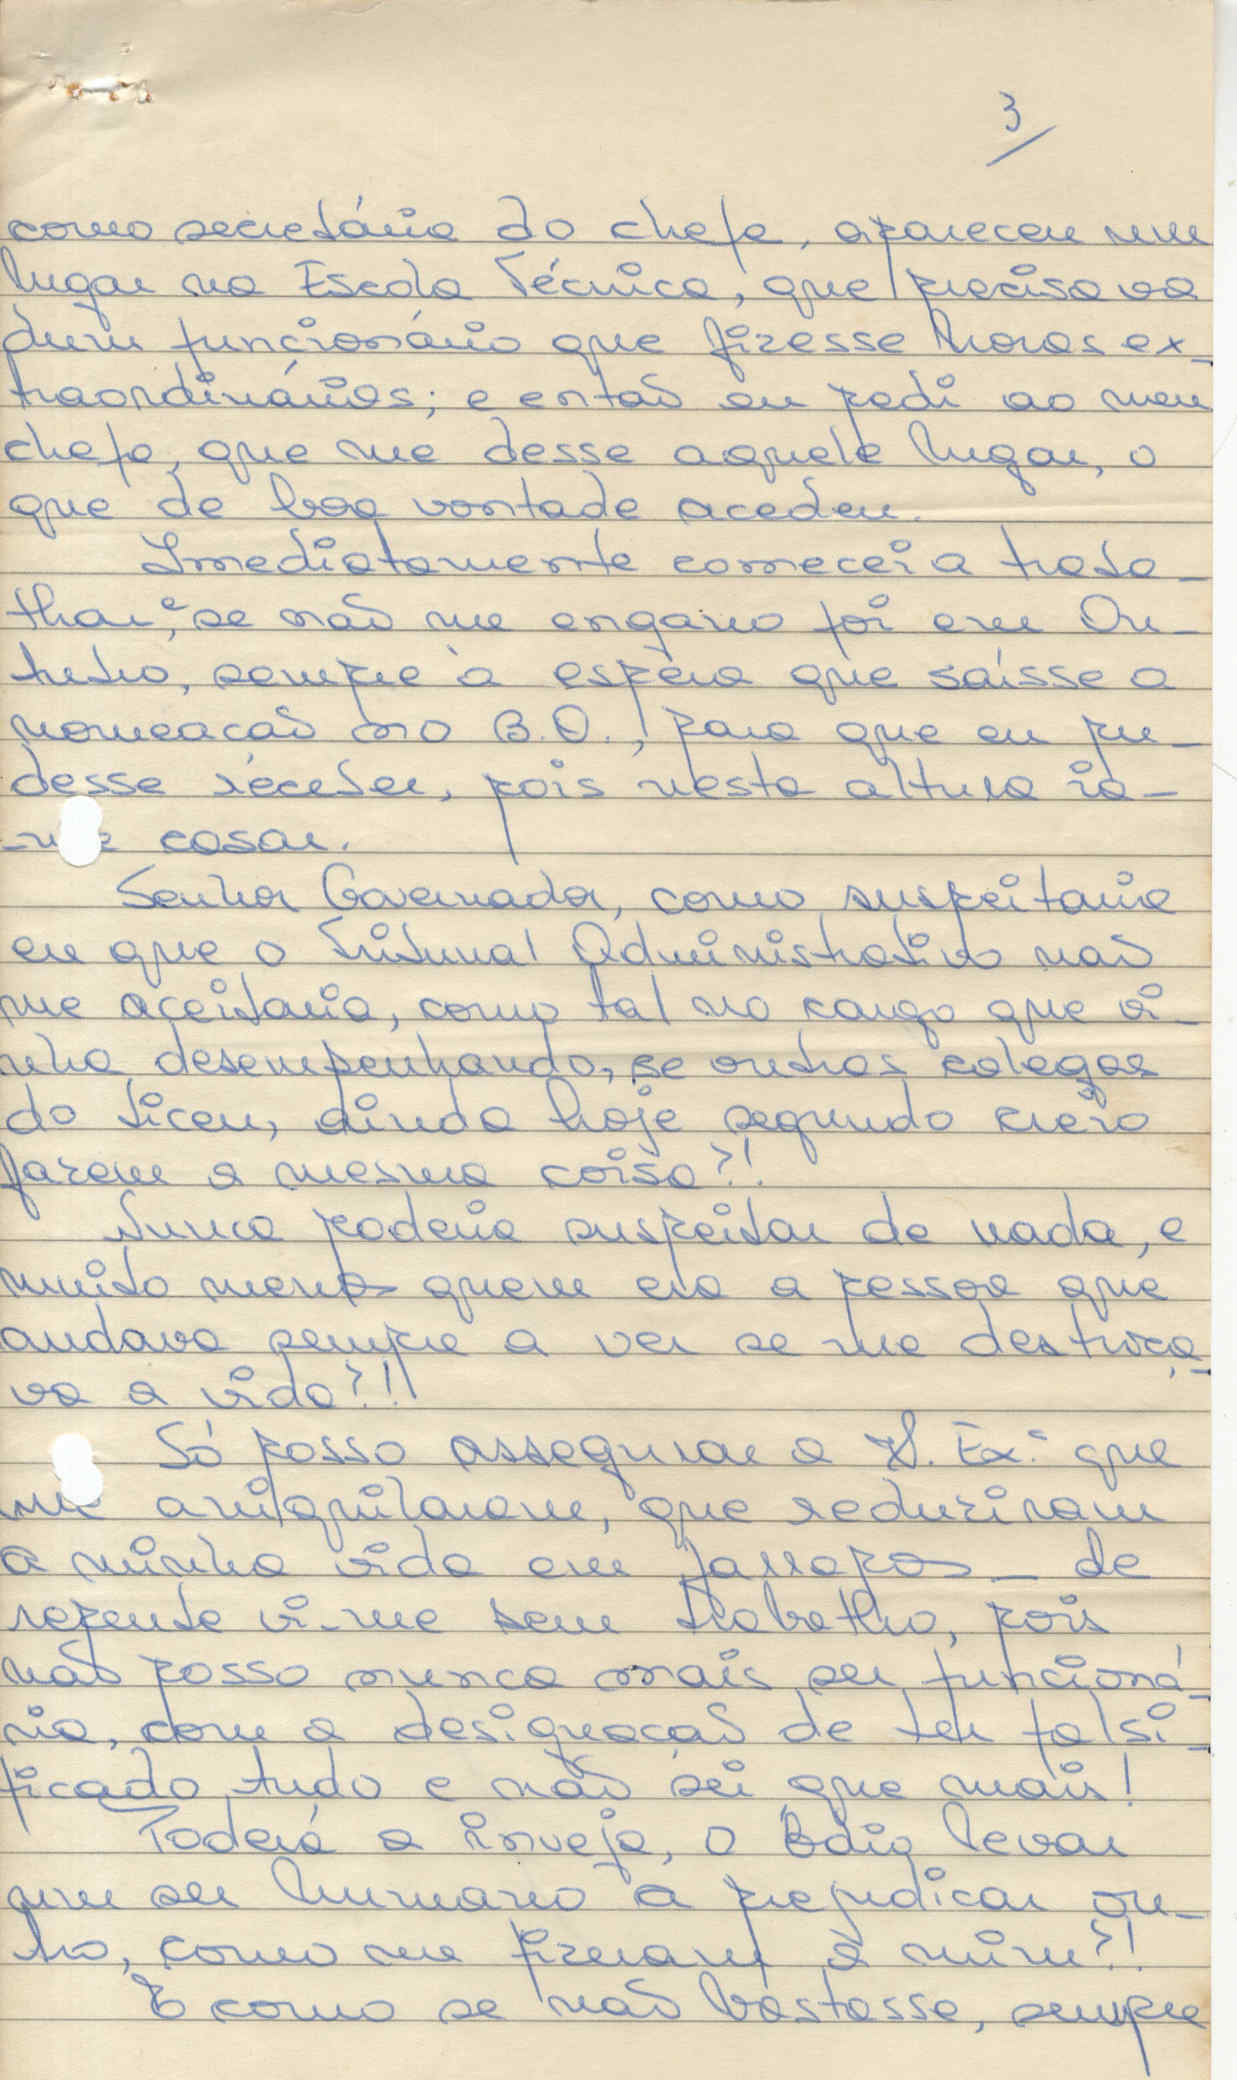 3
como secretária do chefe, apareceu um
lugar na Escola Técnica, que precisava
dum funcionário que fizesse horas ex-
traordinárias; e então eu pedi ao meu
chefe, que me desse aquele lugar, o
que de boa vontade acedeu.
Imediatamente comecei a traba-
lhar, e se não me engano foi em Ou-
tubro, sempre à espera que saísse a
nomeação no B.O., para que eu pu-
desse receber, pois nesta altura ia-
-me casar.
Senhor Governador, como suspeitaria
eu que o Tribunal Administrativo não
me aceitaria, como tal no cargo que vi-
nha desempenhando, se outras colegas
do Liceu, ainda hoje segundo creio
fazem a mesma coisa?!
Nunca poderia suspeitar de nada, e
muito menos quem era a pessoa que
andava sempre a ver se me destroça-
va a vida?!!
Só posso assegurar a V. Exª que
me aniquilaram, que reduziram
a minha vida em farrapos - de
repente vi-me sem trabalho, pois
não posso nunca mais ser funcioná-
ria, com a designação de ter falsi-
ficado tudo e não sei que mais!
Poderá a inveja, o ódio levar
um ser humano a prejudicar ou-
tro, como me fizeram a mim?!
E como se não bastasse, sempre